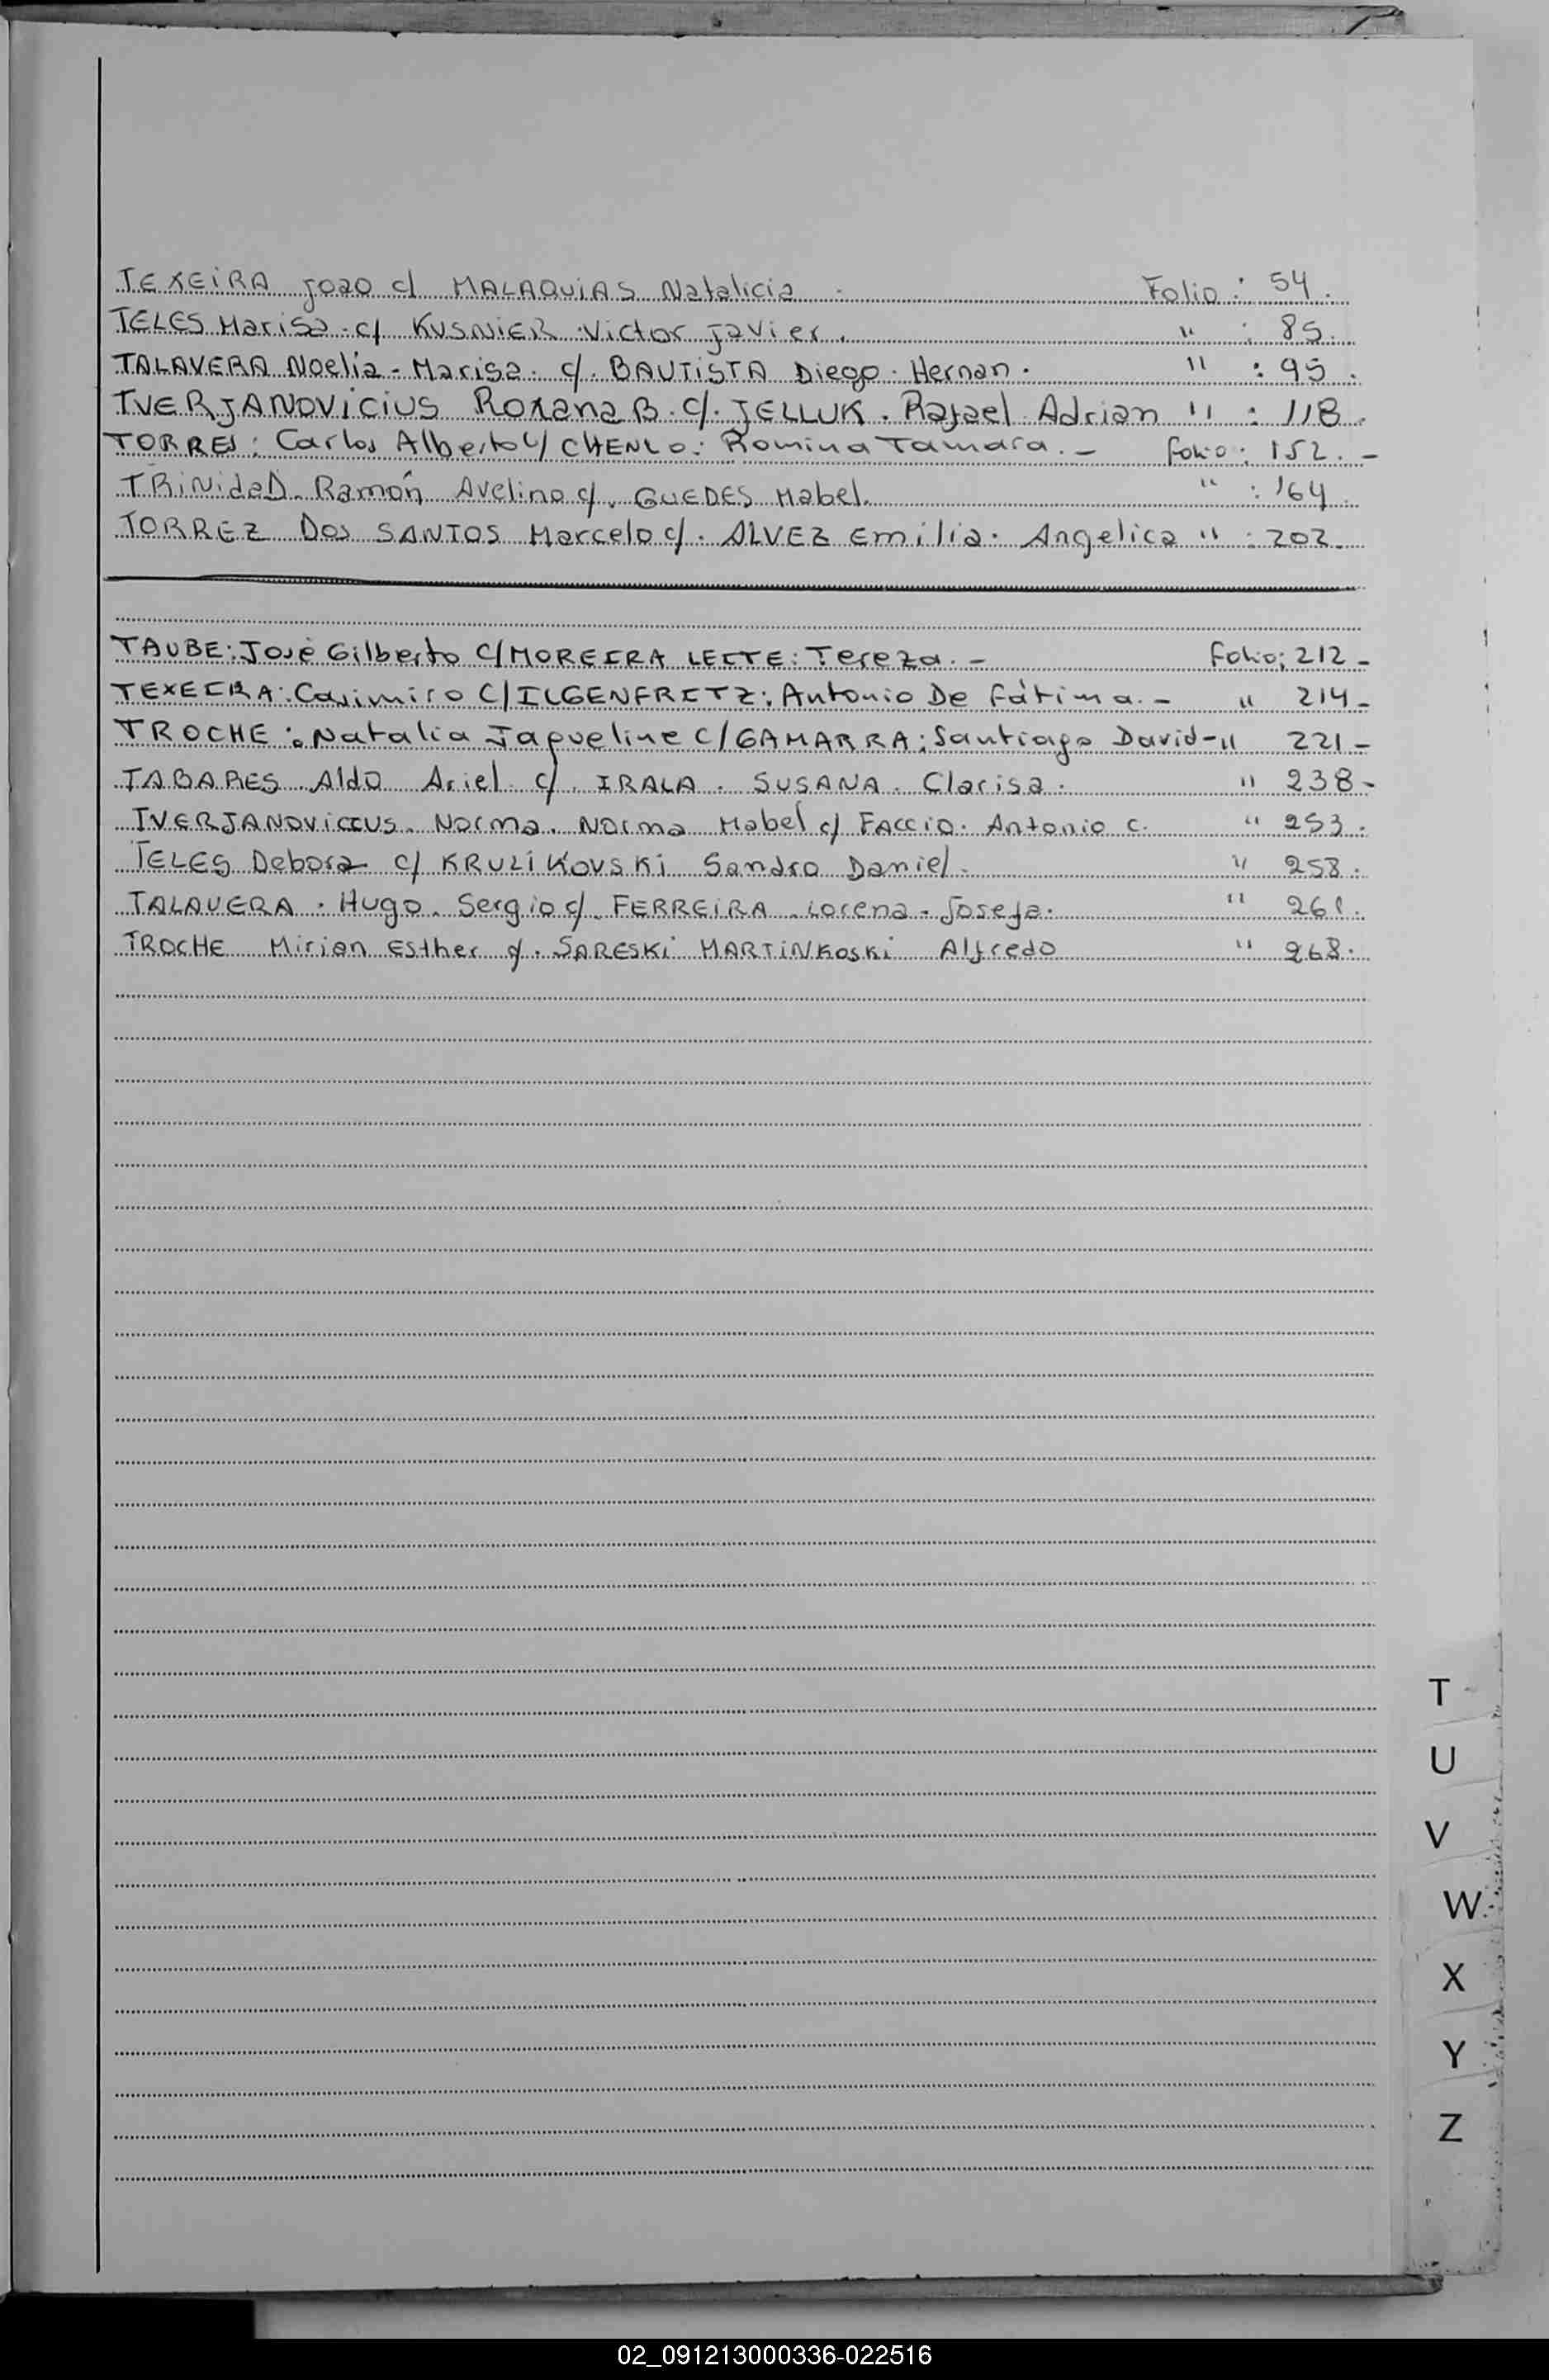 TEXEIRA Joao c/ MALAQUIAS Natalicia . Folio : 54 .
TELES Marisa . c/ KUSNIER . Victor Javier . " : 85 .
TALAVERA Noelia - Marisa . c/ . BAUTISTA Diego . Hernan . " : 95 .
TVERJANOVICIUS Roxana B . c/ . JELLUK . Rafael Adrian " : 118 .
TORRES : Carlos Alberto c/ CHENLO : Romina Tamara . - folio : 152 . -
TRINIDAD . Ramón Avelino c/ . GUEDES Mabel . " : 164 .
TORREZ Dos SANTOS Marcelo c/ . ALVEZ Emilia . Angelica " : 202 .
TAUBE : José Gilberto C/ MOREIRA LEITE : Tereza . - Folio ; 212 -
TEXEIRA : Casimiro C/ ILGENFRITZ : Antonio De Fátima . - " 214 -
TROCHE : Natalia Jaqueline C/ GAMARRA : Santiago David - " 221 -
TABARES . Aldo Ariel c/ . IRALA . SUSANA . Clarisa . " 238 -
TVERJANOVICIUS . Norma . Norma Mabel c/ FACCIO . Antonio C . " 253 .
TELES Debora c/ KRULIKOVSKI Sandro Daniel . " 258 .
TALAVERA . Hugo . Sergio c/ . FERREIRA . Lorena . Josefa . " 261 .
TROCHE Mirian Esther c/ . SARESKI MARTINKOSKI Alfredo " 268 .
T
U
V
W
X
Y
Z
02_091213000336-022516